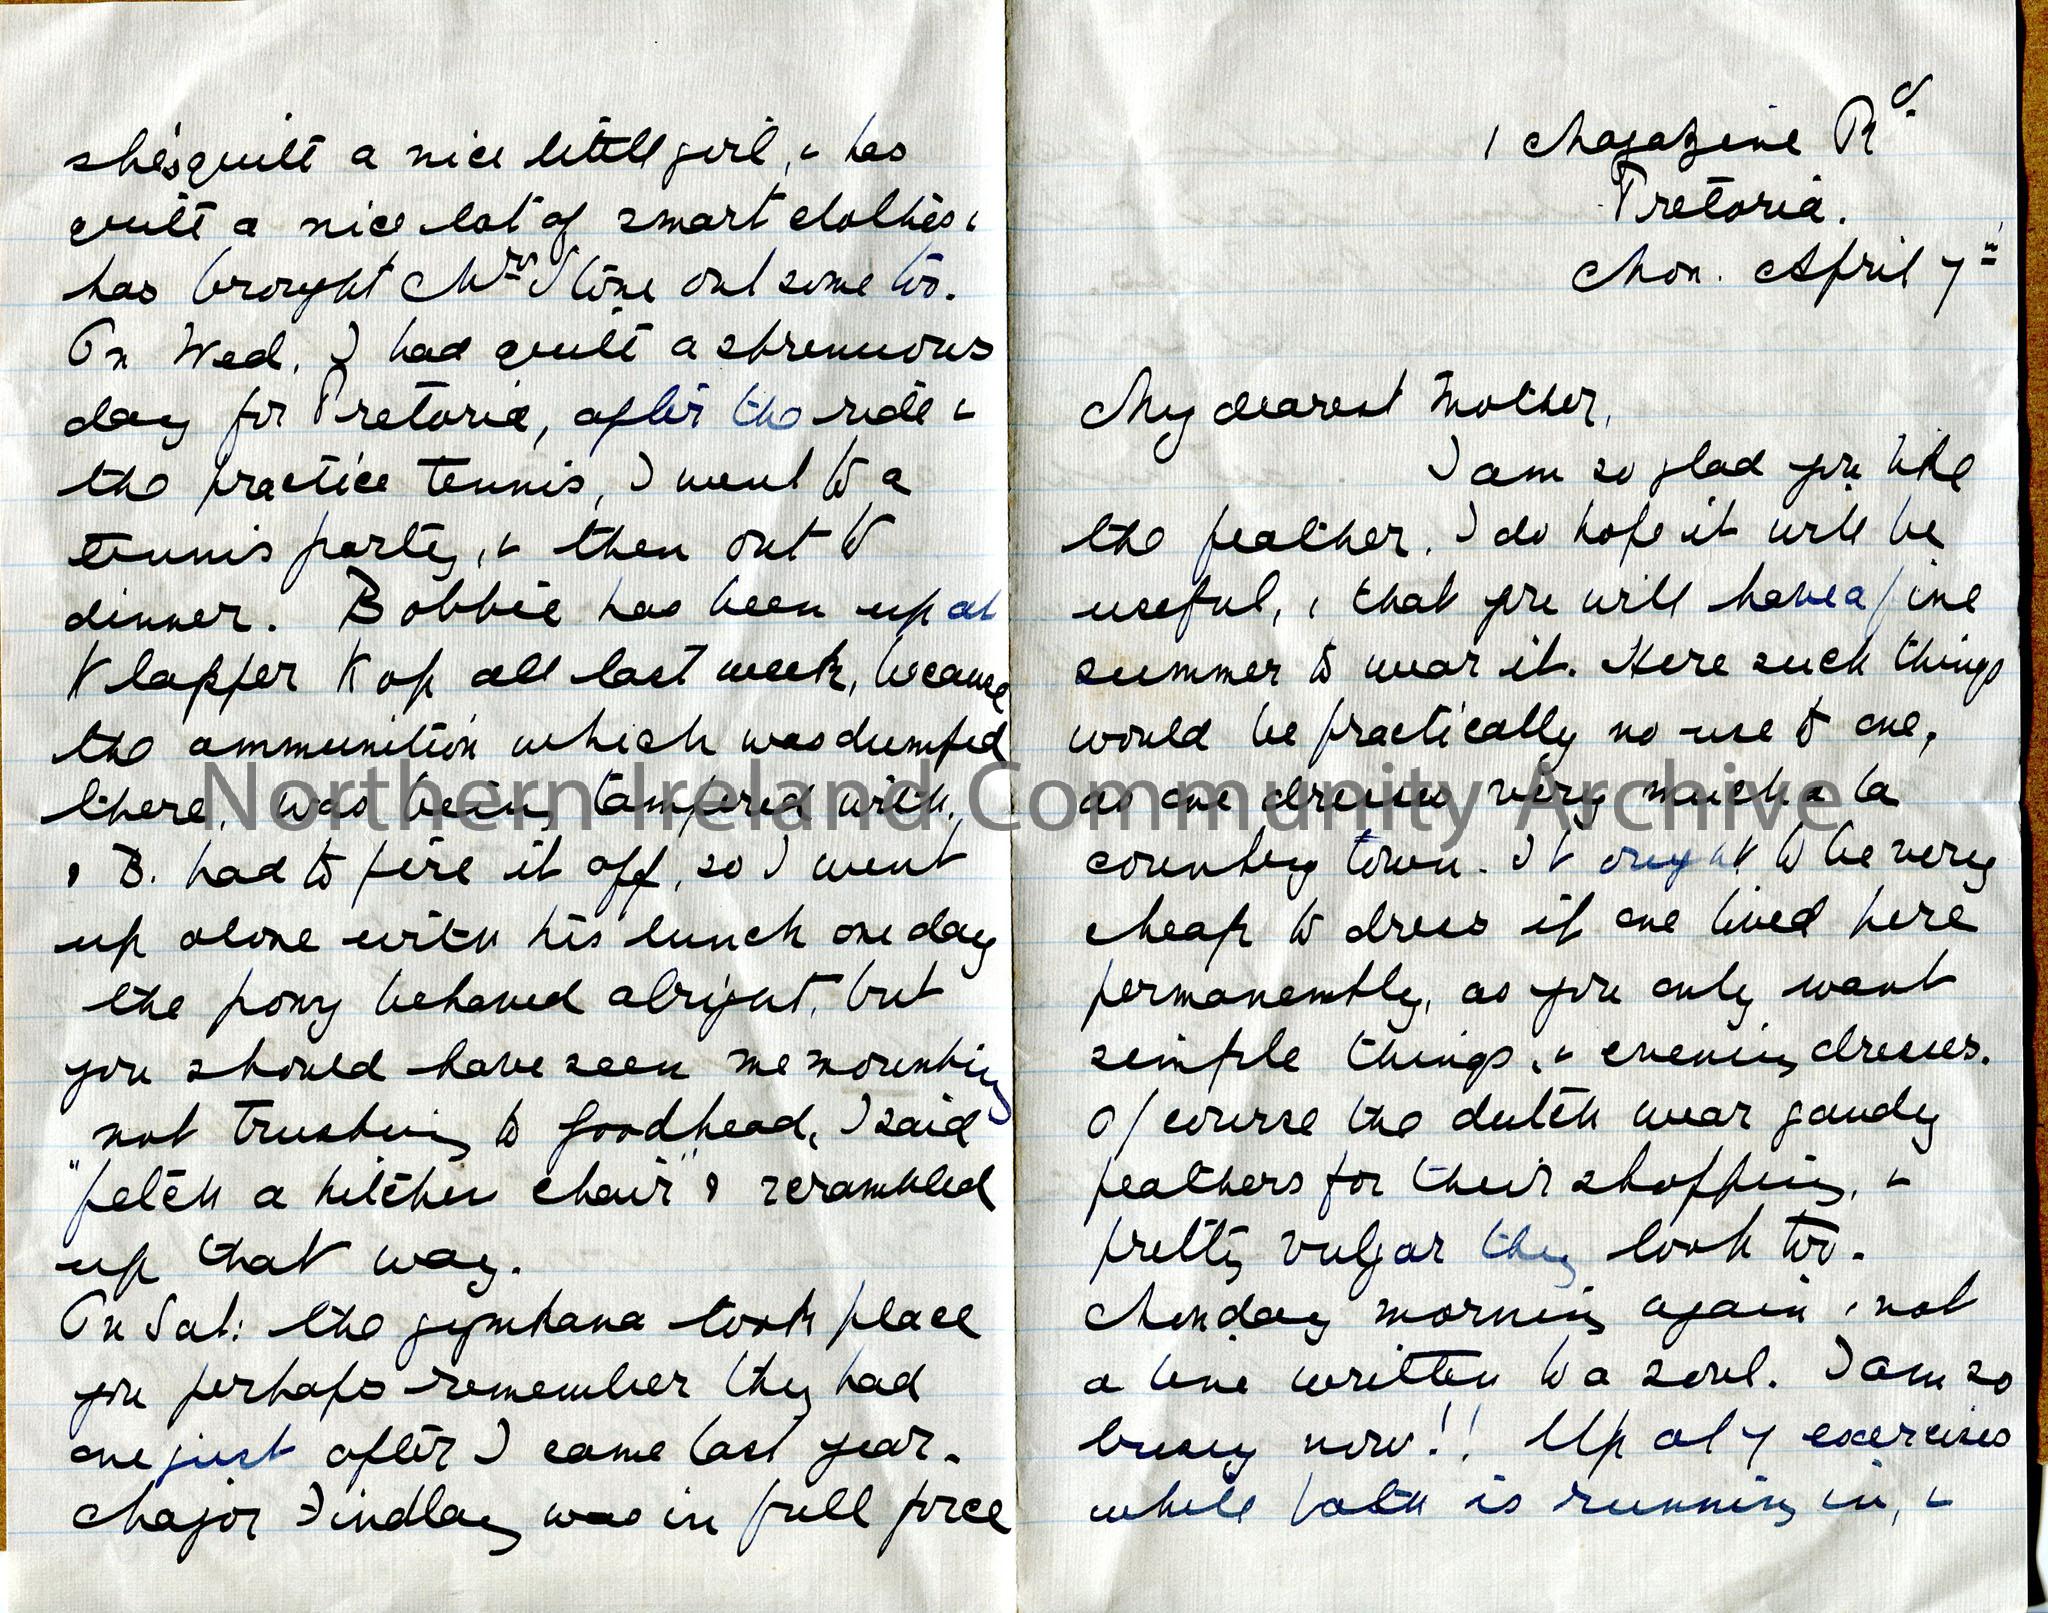 1 Magazine Rd.
Pretoria.
Mon. April 7th
My dearest Mother,
I am so glad you like
the feather, I do hope it will be
useful, & that you will have a fine
summer to wear it. Here such things
would be practically no use to one,
as one dresses very much a la
country town. It ought to be very
cheap to dress if one lived here
permanently, as you only want
simple things, & evening dresses.
Of course the dutch wear gaudy
feathers for their shopping, &
pretty vulgar they look too.
Monday morning again & not
a line written to a soul. I am so
busy now!! Up at 7 exercises
while bath is running in, &
she's quite a nice little girl, & has
quite a nice lot of smart clothes, &
has brought Mrs Stone out some too.
On Wed. I had quite a strenuous
day for Pretoria, after the ride &
the practice tennis, I went to a
tennis party, & then out to
dinner. Bobbie has been up at
Klapper Kop all last week, because
the ammunition which was dumped
there, was being tampered with,
& B. had to fire it off, so I went
up alone with his lunch one day
the pony behaved alright, but
you should have seen me mounting
not trusting to Goodhead, I said
"fetch a kitchen chair" & scrambled
up that way.
On Sat: the gymkana took place
you perhaps remember they had
one just after I came last year.
Major Findlay was in full force
Northern Ireland Community Archive